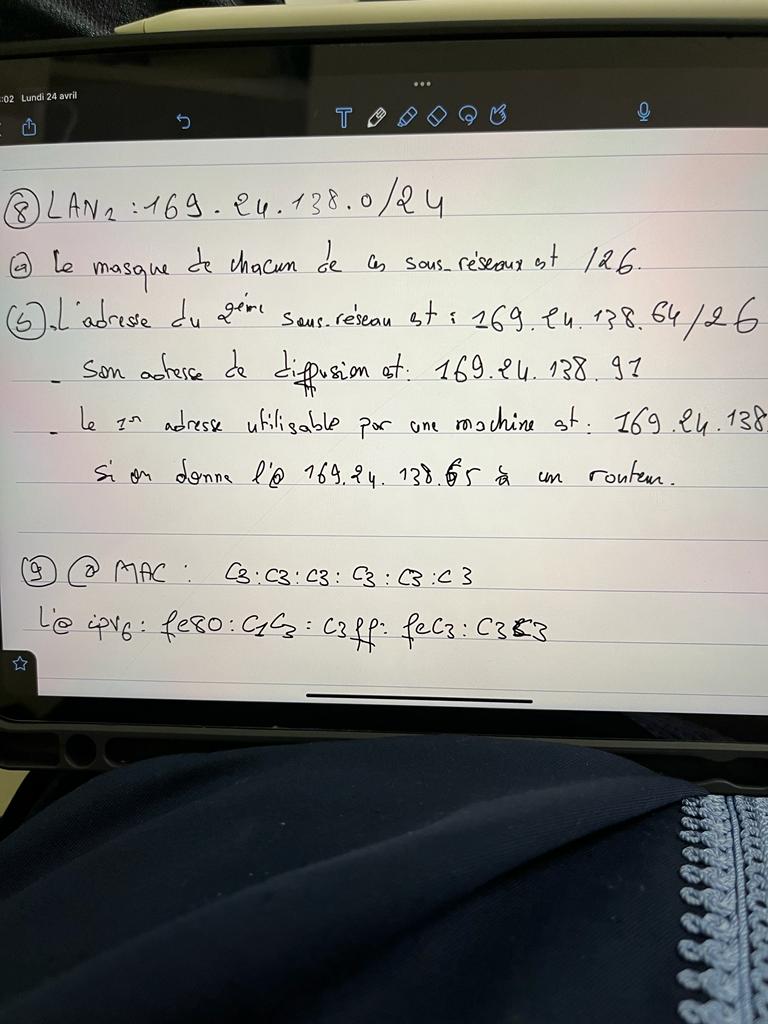 :02 Lundi 24 avril
T
⑧ LAN2 : 169.24.138.0/24
ⓐ Le masque de chacun de ces sous-réseaux est /26.
ⓑ. L'adresse du 2ème sous-réseau est : 169.24.138.64/26
- Son adresse de diffusion est: 169.24.138.91
- Le 1er adresse utilisable par une machine est: 169.24.138.
si on donne l'@ 169.24.138.65 à un routeur.
⑨ @ MAC : C3:C3:C3:C3:C3:C3
L'@ ipv6: fe80:C1C3:C3ff:feC3:C3C3